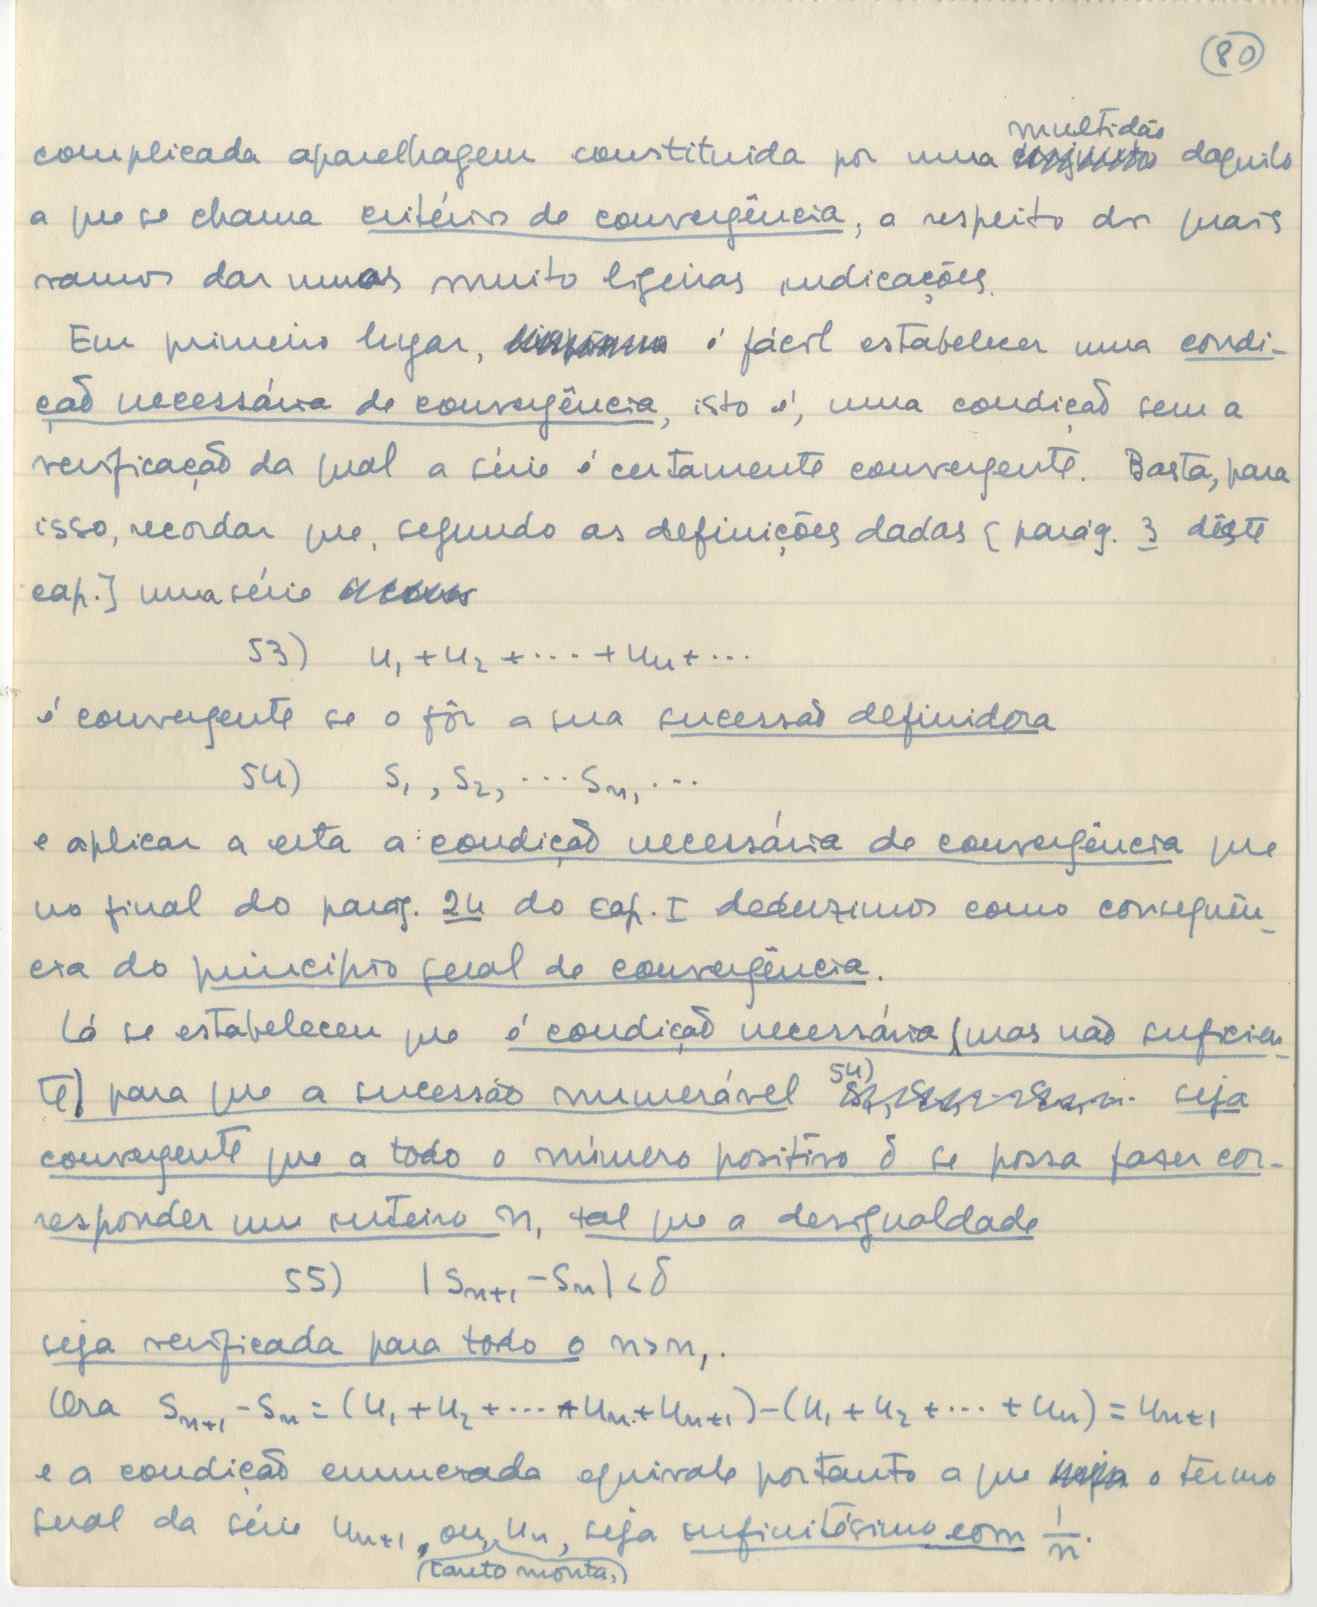 80
multidão
complicada aparelhagem constituida por uma daquilo
a que se chama critérios de convergência, a respeito dos quais
vamos dar umas muito ligeiras indicações.
Em primeiro lugar, é fácil estabelecer uma condi-
ção necessária de convergência, isto é, uma condição sem a
verificação da qual a série é certamente convergente. Basta, para
isso, recordar que, segundo as definições dadas [parág. 3 dêste
cap.] uma série
53) u₁ + u₂ + ··· + uₙ + ···
é convergente se o fôr a sua sucessão definidora
54) s₁, s₂, ··· sₙ, ···
e aplicar a esta a condição necessária de convergência que
no final do parág. 24 do cap. I deduzimos como consequên-
cia do princípio geral de convergência.
Lá se estabeleceu que é condição necessária (mas não suficien-
te) para que a sucessão numerável 54) seja
convergente que a todo o número positivo δ se possa fazer cor-
responder um inteiro n₁ tal que a desigualdade
55) |sₙ₊₁ - sₙ| < δ
seja verificada para todo o n>n₁.
Ora sₙ₊₁ - sₙ = (u₁ + u₂ + ··· + uₙ + uₙ₊₁) - (u₁ + u₂ + ··· + uₙ) = uₙ₊₁
e a condição enunciada equivale portanto a que o termo
geral da série uₙ₊₁, ou, uₙ, seja infinitésimo com 1/n.
(tanto monta,)